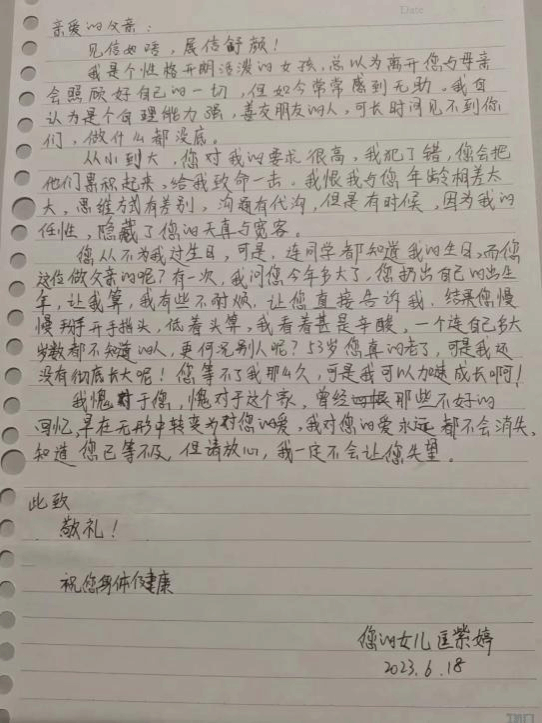 Date
亲爱的父亲：
见信如晤，展信舒颜！
我是个性格开朗活泼的女孩，总以为离开您与母亲
会照顾好自己的一切，但如今常常感到无助。我自
认为是个自理能力强，喜交朋友的人，可长时间见不到你
们，做什么都没底。
从小到大，您对我的要求很高，我犯了错，您会把
他们累积起来，给我致命一击。我恨我与您年龄相差太
大，思维方式有差别，沟通有代沟，但是有时候，因为我的
任性，隐藏了您的天真与宽容。
您从不为我过生日，可是，连同学都知道我的生日，而您
这位做父亲的呢？有一次，我问您今年多大了，您扔出自己的出生
年，让我算，我有些不耐烦，让您直接告诉我，结果您慢
慢掰开手指头，低着头算，我看着甚是辛酸，一个连自己多大
岁数都不知道的人，更何况别人呢？53岁您真的老了，可是我还
没有彻底长大呢！您等不了我那么久，可是我可以加速成长啊！
我愧对于您，愧对于这个家，曾经那些不好的
回忆，早在无形中转变为对您的爱，我对您的爱永远都不会消失，
知道您已等不及，但请放心，我一定不会让您失望。
此致
敬礼！
祝您身体健康
您的女儿匡紫婷
2023.6.18